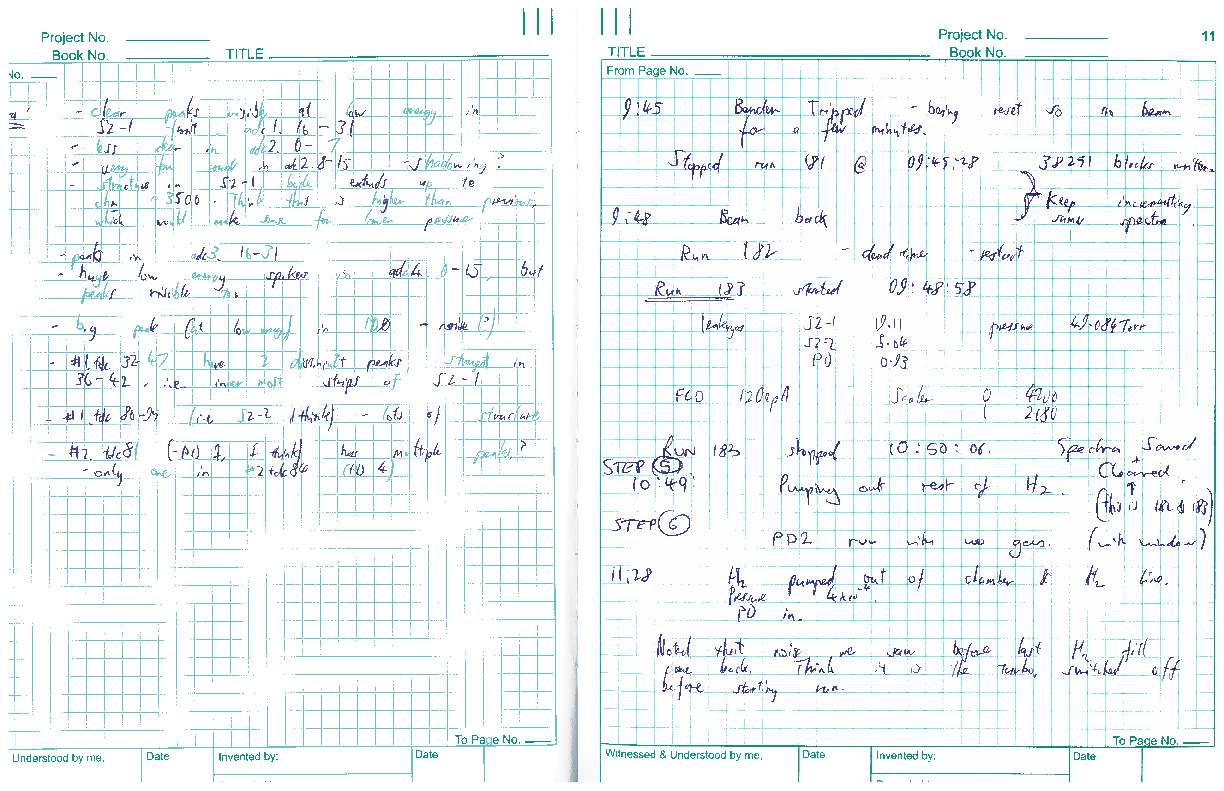 Project No.
Book No. TITLE
No.
- clear peaks visible at low energy in
S2-1 front, adc1. 16-31
- less clear in adc2. 0-7
- very few counts in adc2. 8-15 - shadowing?
- structure in S2-1 back extends up to
chn ~3500. Think this is higher than previous,
which would make sense for lower pressure
- peaks in adc3. 16-31
- huge low energy spikes in adc4 0-15, but
peaks visible too
- big peak (at low energy) in - noise (?)
- #1. tdc. 32-47 have 2 distinct peaks, strongest in
36-42, i.e. inner most strips of S2-1
- #1. tdc 80-94 (ie S2-2 I think) - lots of structure
- #2. tdc81 (-PD 1, I think) has multiple peaks?
- only one in #2 tdc84 (PD 4)
To Page No.
Understood by me, Date Invented by: Date
Project No. 11
TITLE Book No.
From Page No.
9:45 Tripped - being reset so no beam
for a few minutes.
Stopped run 181 @ 09:45:28 38251 blocks written.
Keep incrementing
same spectra
9:48 Beam back
Run 182 - dead time - restart
Run 183 started 09:48:58
leakages S2-1 pressure 49.084 Torr
S2-2 5.04
PD 0.93
120epA Scaler 0 4200
1 2180
RUN 183 stopped 10:50:06. Spectra Saved
+
STEP (5) Cleared
10:49 Pumping out rest of H2. ↑
(this is 182 & 183)
STEP (6)
PD2 run with no gas. (with window)
11:28 H2 pumped out of chamber & H2 line.
Pressure 4x10⁻⁴.
PD in.
Noted that noise we saw before last H2 fill
came back. Think it is the turbo, switched off
before starting run.
To Page No.
Witnessed & Understood by me, Date Invented by: Date